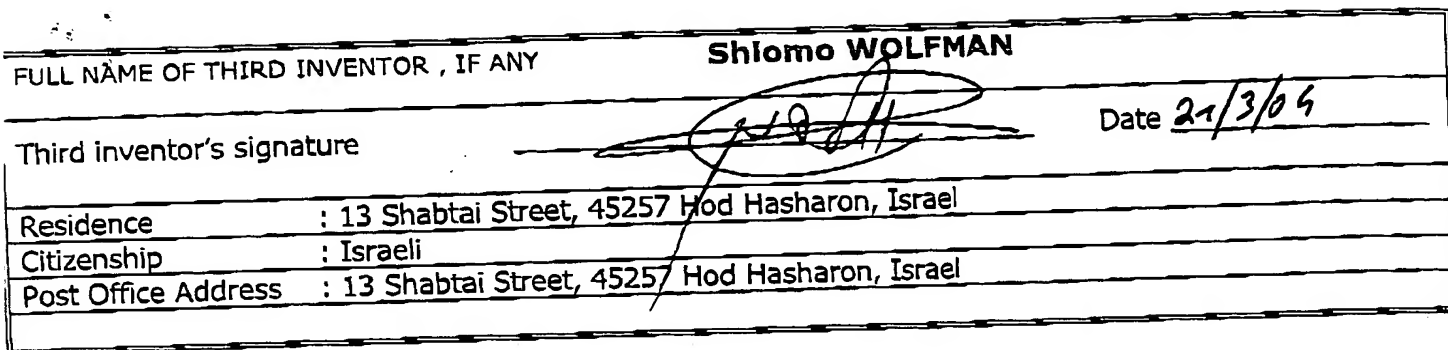 FULL NAME OF THIRD INVENTOR , IF ANY Shlomo WOLFMAN
Third inventor's signature Date 21/3/04
Residence : 13 Shabtai Street, 45257 Hod Hasharon, Israel
Citizenship : Israeli
Post Office Address : 13 Shabtai Street, 45257 Hod Hasharon, Israel